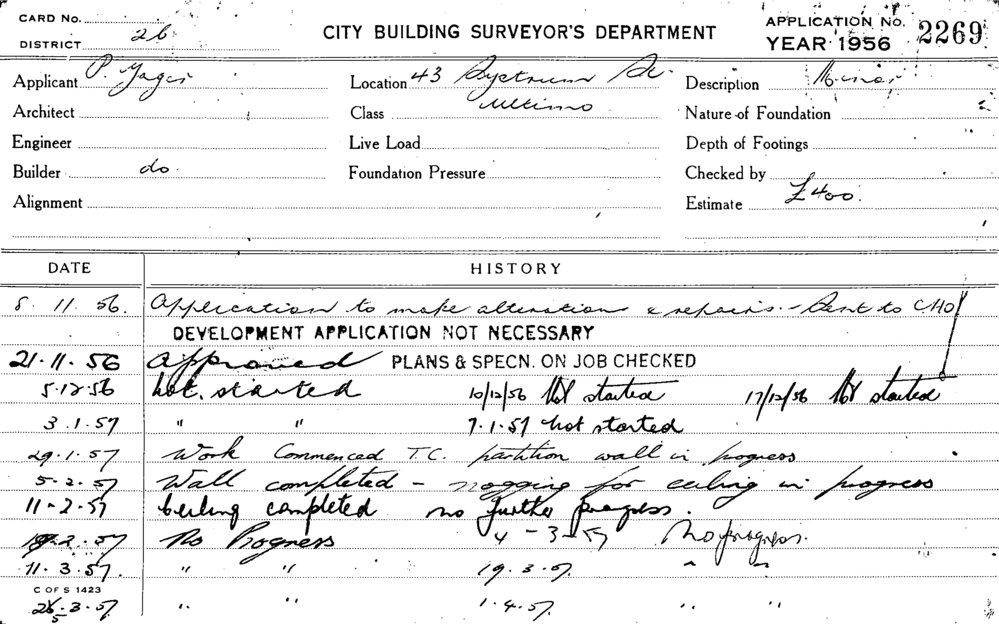 CARD No.
DISTRICT 26
CITY BUILDING SURVEYOR'S DEPARTMENT
APPLICATION No. 2269
YEAR 1956
Applicant P. Yager Location 43 St. Description Minor
Architect Class Ultimo Nature of Foundation
Engineer Live Load Depth of Footings
Builder do. Foundation Pressure Checked by
Alignment Estimate £400.
DATE HISTORY
8. 11. 56. Application to make alterations & repairs. - Sent to CHO
DEVELOPMENT APPLICATION NOT NECESSARY
21. 11. 56 Approved PLANS & SPECN. ON JOB CHECKED
5-12-56 Not. started 10/12/56 Not started 17/12/56 Not started
3.1.57 " " 7.1.57 Not started
29.1.57 Work Commenced T.C. partition wall in progress
5-2.57 Wall completed - nogging for ceiling in progress
11-2-57 Ceiling completed no further progress.
2.57 No Progress 4-3-57 No progress.
11.3.57. " " 19.3.57. " "
C OF S 1423
26-3.57 " " 1.4.57. " "